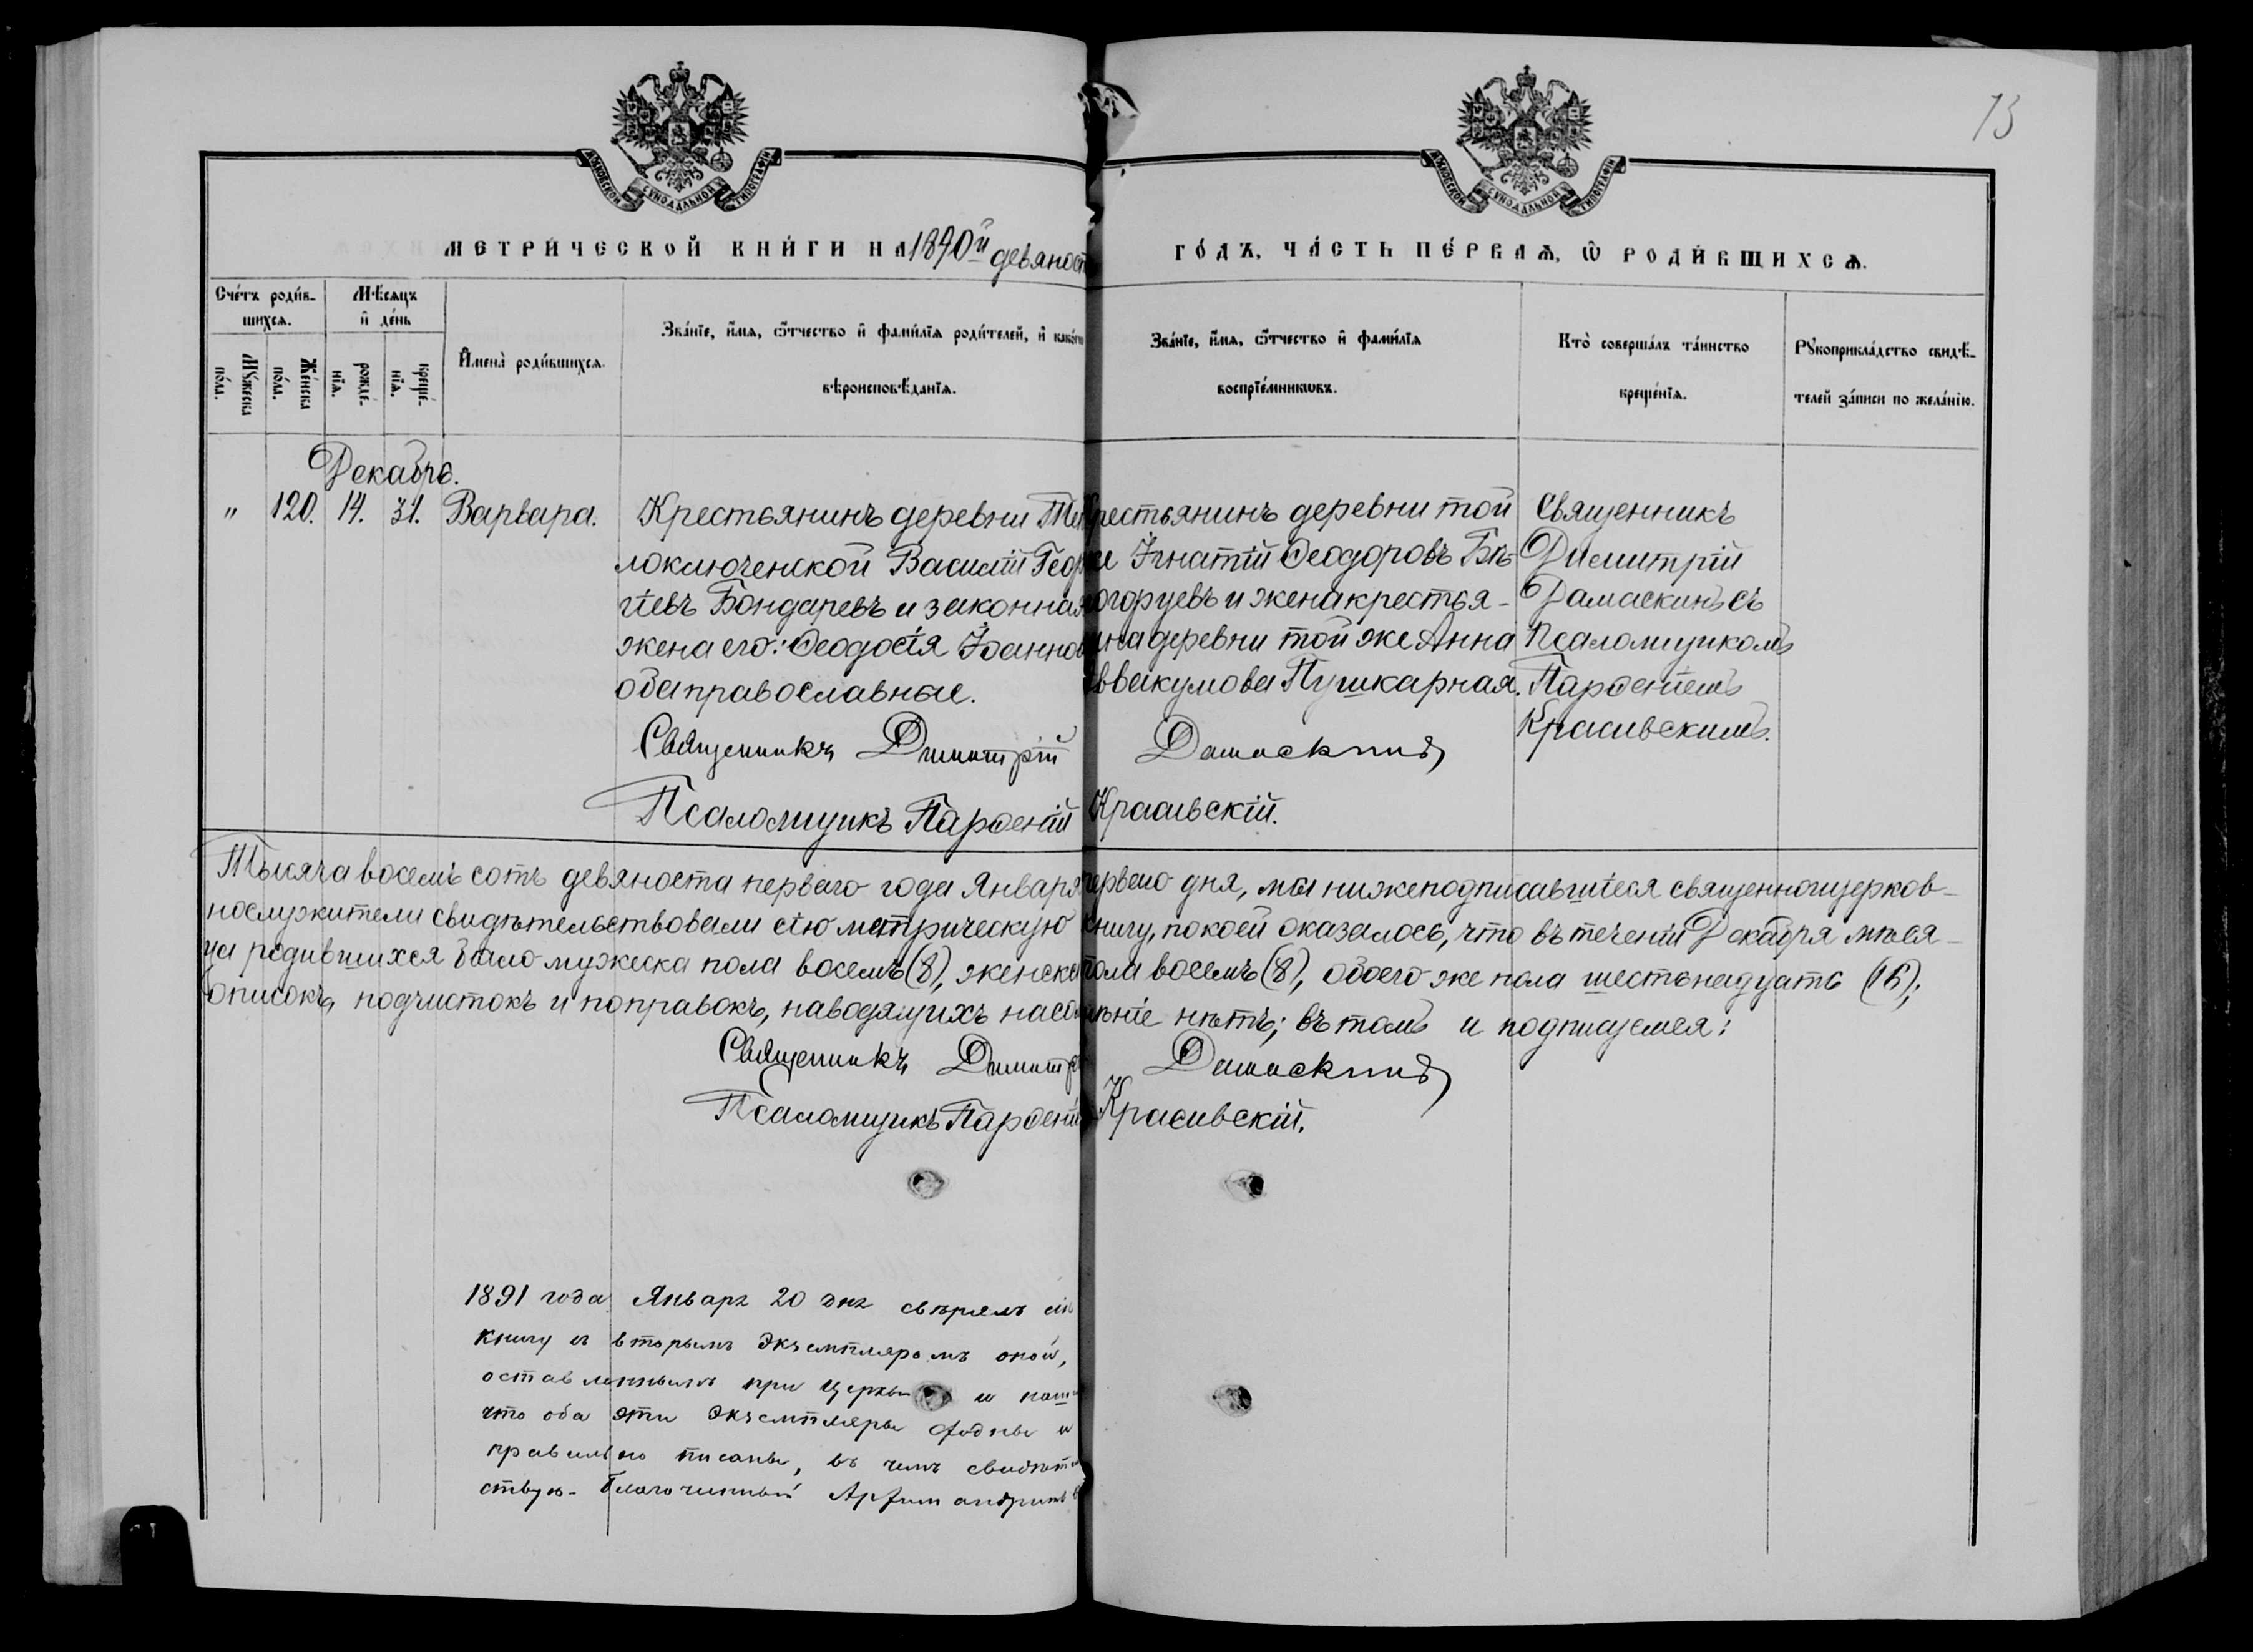 73
МОСКОВСКОЙ СѴНОДАЛЬНОЙ ТИПОГРАФІИ
МОСКОВСКОЙ СѴНОДАЛЬНОЙ ТИПОГРАФІИ
МЕТРИ́ЧЕСКОЙ КНИ́ГИ НА 1890й девяност ГО́ДЪ, ЧА́СТЬ ПЕ́РВАѦ, Ѡ РОДИ́ВШИХСѦ.
Сче́тъ роди́в-
шихсѧ.
Мꙋ́жеска
по́ла.
Же́нска
по́ла.
Мѣ́сѧцъ
и҆ де́нь
рожде́-
нїѧ.
креще́-
нїѧ.
И҆мена̀ роди́вшихсѧ.
Зва́нїе, и҆́мѧ, ѻ҆́тчество и҆ фами́лїѧ роди́телей, и҆ како́гѡ
вѣроисповѣ́данїѧ.
Зва́нїе, и҆́мѧ, ѻ҆́тчество и҆ фами́лїѧ
воспрїе́мникѡвъ.
Кто̀ соверша́лъ та́инство
креще́нїѧ.
Рꙋкоприкла́дство свидѣ́-
телей за́писи по жела́нїю.
Декабрь.
" 120. 14. 31. Варвара.
Крестьянинъ деревни Те
лоключенской Василій Геор
гіевъ Бондаревъ и законная
жена его: Ѳеодосія Іоаннов
оба православные.
Крестьянинъ деревни той
же Игнатій Ѳеодоровъ Бѣ-
логорцевъ и жена крестья-
нина деревни той же Анна
Аввакумова Пушкарная.
Священникъ
Димитрій
Дамаскинъ съ
Псаломщикомъ
Парѳеніемъ
Красивскимъ.
Священникъ Димитрій Дамаскинъ
Псаломщикъ Парѳеній Красивскій.
Тысяча восемь сотъ девяноста перваго года Января перваго дня, мы нижеподписавшіеся священноицерков-
нослужители свидѣтельствовали сію метрическую книгу, по коей оказалось, что въ теченіи Декабря мѣся-
ца родившихся было мужеска пола восемь (8), женска пола восемь (8), обоего же пола шестьнадцать (16);
описокъ, подчистокъ и поправокъ, наводящихъ на сомнѣніе нѣтъ; въ томъ и подписуемся:
Священникъ Димитрій Дамаскинъ
Псаломщикъ Парѳеній Красивскій.
1891 года Января 20 дня свѣрялъ сію
книгу съ вторымъ экземпляромъ оной,
оставленнымъ при церкви и наш
что оба эти экземпляры сходны и
правильно писаны, въ чемъ свидѣтель
ствую. Благочинный Архимандритъ